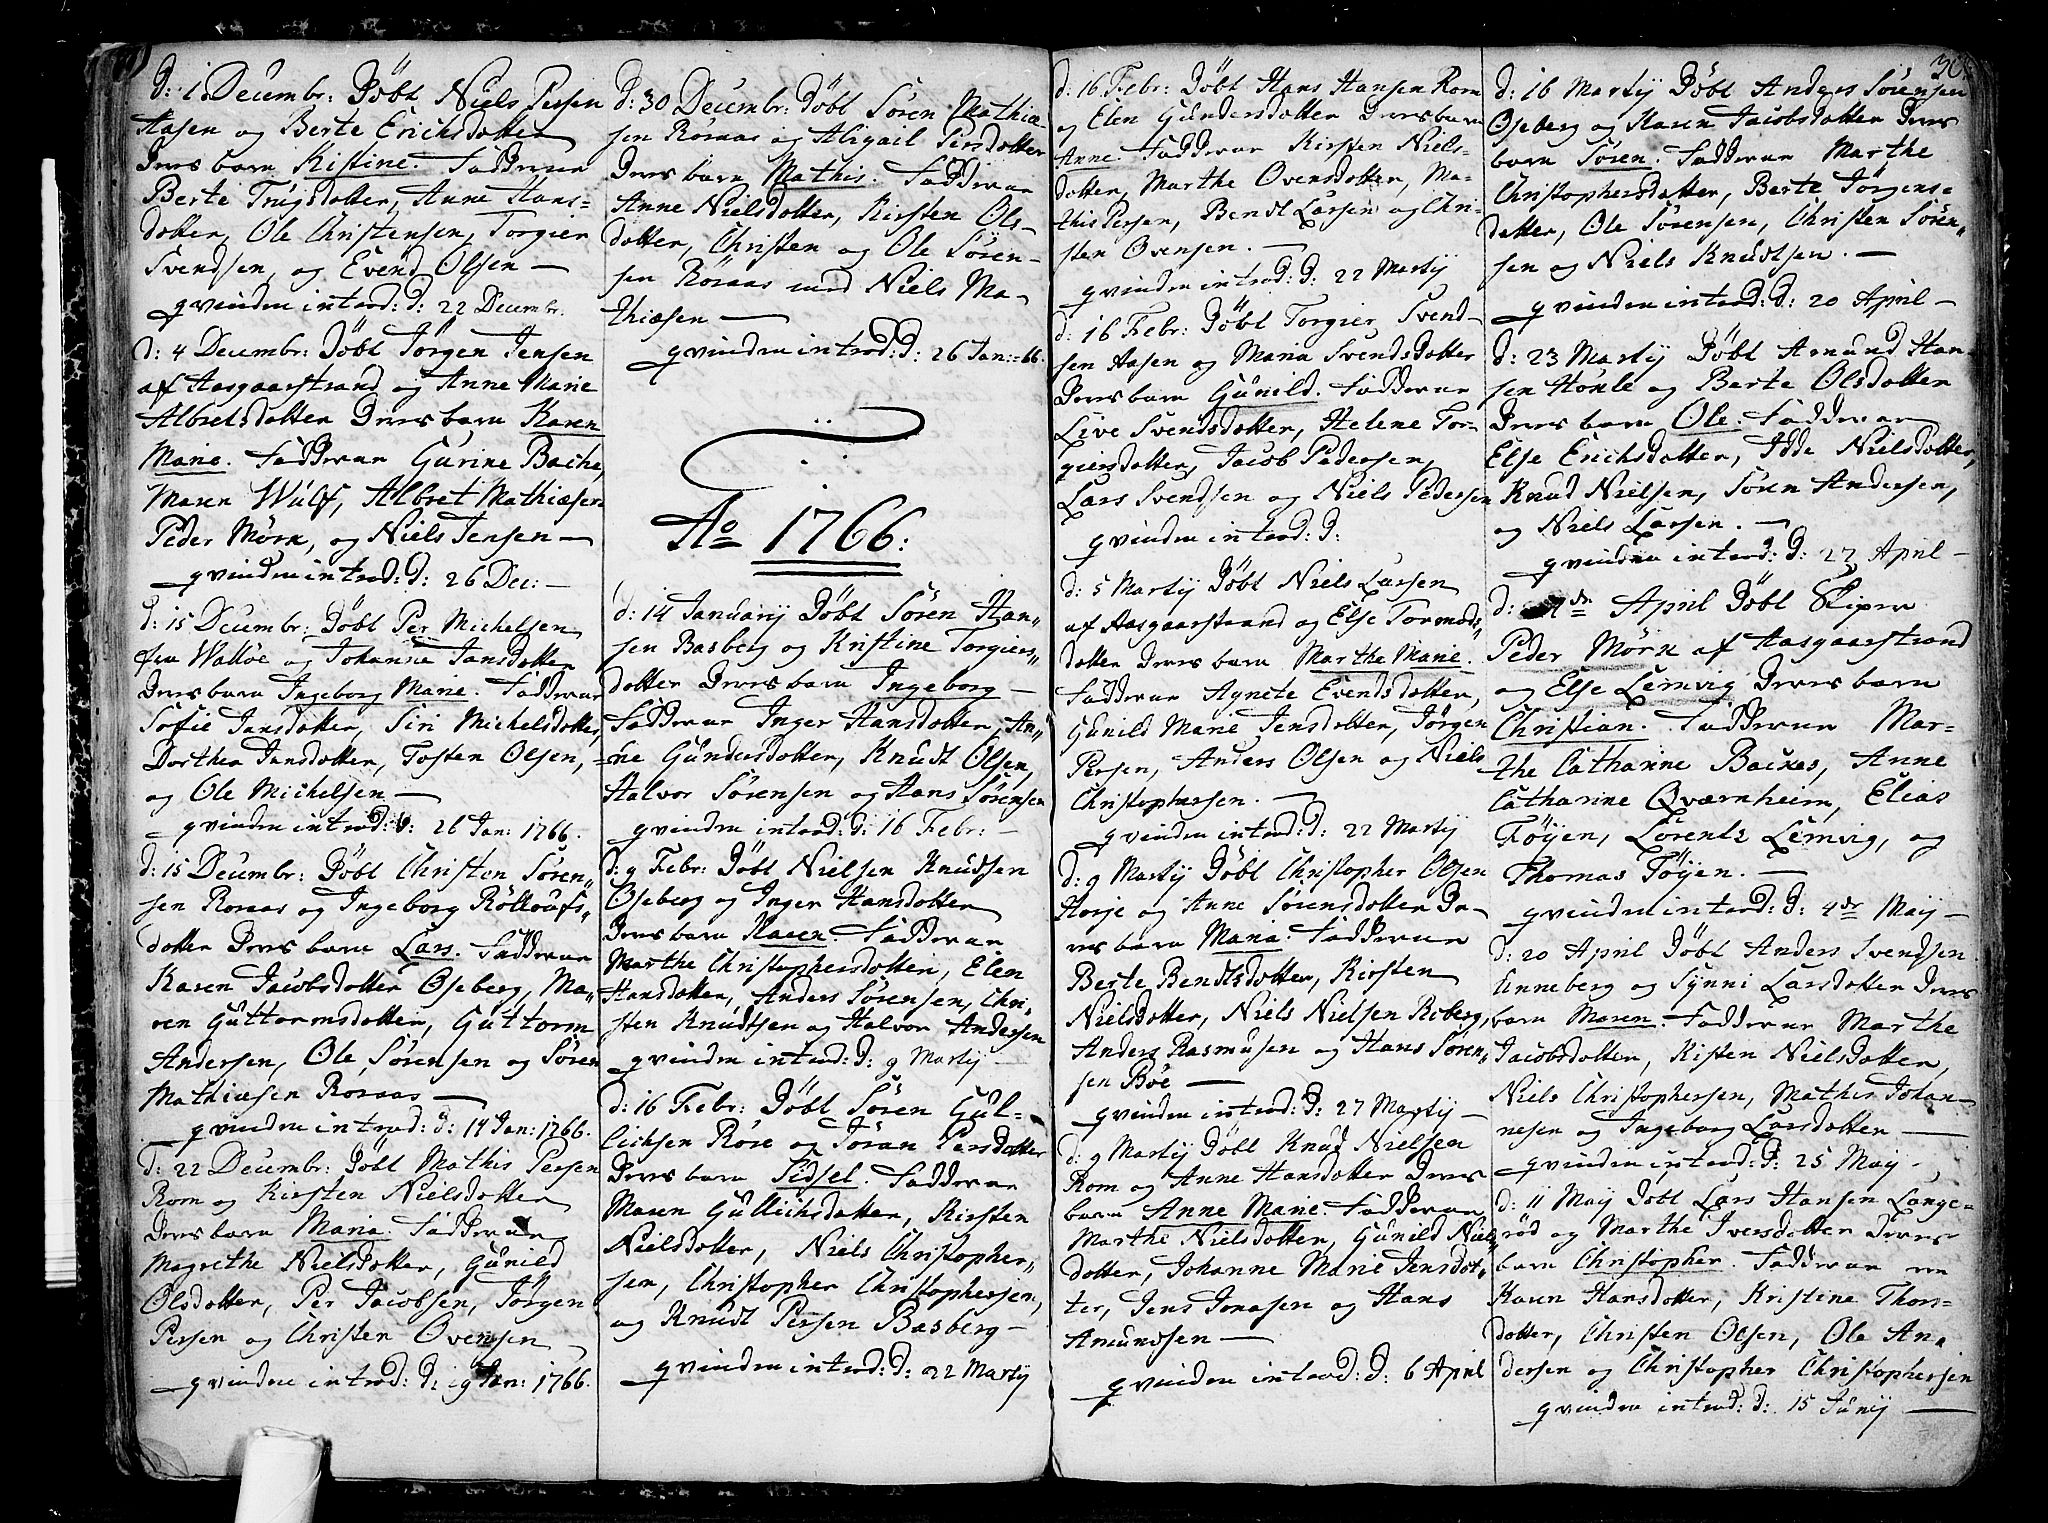 d: 1 Decembr: Döbt Niels Persen
Aasen og Berte Erichsdotter
Deres barn Kistine. Fadderne
Berte Trugsdotter, Anne Hans-
dotter, Ole Christensen, Torgier
Svendsen, og Evend Olsen —
qvinden introd: d: 22 Decembr.
d: 4 Decembr: Döbt Jörgen Jensen
af Aasgaarstrand og Anne Marie
Albretsdotter Deres barn Karen
Marie. Fadderne Gurine Bache,
Maren Wulf, Albret Mathiæsen
Peder Mörk, og Niels Jensen —
qvinden introd: d: 26 Dec: —
d: 15 Decembr: Döbt Per Michelsen
fra Walløe og Johanne Jansdotter
Deres barn Ingeborg Marie. Fadderne
Sofie Jansdotter, Siri Michelsdotter,
Dorthea Jansdotter, Tosten Olsen,
og Ole Michelsen —
qvinden introd: d: 26 Jan: 1766.
d: 15 Decembr: Döbt Christen Sören-
sen Roraas og Ingeborg Rölloufs-
dotter Deres barn Lars. Fadderne
Karen Jacobsdotter Oseberg, Ma-
ren Guttormsdotter, Guttorm
Andersen, Ole Sörensen og Sören
Mathiæsen Roraas —
qvinden introd: d: 14 Jan: 1766.
d: 22 Decembr: Döbt Mathis Persen
Rom og Kirsten Nielsdotter
Deres barn Maria. Fadderne
Magrethe Nielsdotter, Gunild
Olsdotter, Per Jacobsen, Jörgen
Persen og Christen Ovensen
qvinden introd: d: 19 Jan: 1766.
d: 30 Decembr: Döbt Sören Mathiæ-
sen Röraas og Abigail Persdotter
Deres barn Mathis. Fadderne
Anne Nielsdotter, Kirsten Ols-
dotter, Christen og Ole Sören-
sen Röraas med Niels Ma-
thiæsen —
qvinden introd: d: 26 Jan: 66.
Ao 1766:
d: 14 Januarij Döbt Sören Han-
sen Basberg og Kristine Torgiers-
dotter Deres barn Ingeborg —
Fadderne Inger Hansdotter, An-
ne Gundersdotter, Knudt Olsen,
Halvor Sörensen og Hans Sörensen
qvinden introd: d: 16 Febr: —
d: 9 Febr: Döbt Nielsen Knudsen
Oseberg og Inger Hansdotter
Deres barn Karen. Fadderne
Marthe Christophersdotter, Elen
Hansdotter, Anders Sörensen, Chri-
sten Knudtsen og Halvor Andersen
qvinden introd: d: 9 Martij —
d: 16 Febr: Döbt Sören Gul-
lichsen Röse og Jöran Persdotter
Deres barn Sidsel. Fadderne
Maren Gullichsdotter, Kirsten
Nielsdotter, Niels Christopher-
sen, Christopher Christophersen,
og Knudt Persen Basberg —
qvinden introd: d: 22 Martij
d: 16 Febr: Döbt Hans Hansen Rom
og Elen Gundersdotter Deres barn
Anne. Fadderne Kirsten Niels-
dotter, Marthe Ovensdotter, Ma-
this Persen, Bendt Larsen og Chri-
sten Ovensen. —
qvinden introd: d: 22 Martij
d: 16 Febr: Döbt Torgier Svend-
sen Aasen og Maria Svendsdotter
Deres barn Gunild. Fadderne
Live Svendsdotter, Helene Tor-
giersdotter, Jacob Pedersen,
Lars Svendsen og Niels Pedersen
qvinden introd: d:
d: 5 Martij Döbt Niels Larsen
af Aasgaarstrand og Else Tormods-
dotter Deres barn Marthe Marie.
Fadderne Agnete Evendsdotter,
Gunild Marie Jensdotter, Jörgen
Persen, Anders Olsen og Niels
Christophersen. —
qvinden introd: d: 22 Martij
d: 9 Martij Döbt Christopher Olsen
Horje og Anne Sörensdotter De-
res barn Maria. Fadderne
Berte Bendtsdotter, Kirsten
Nielsdotter, Niels Nielsen Roberg,
Anders Rasmusen og Hans Sören-
sen Böe —
qvinden introd: d: 27 Martij —
d: 9 Martij Döbt Knud Nielsen
Rom og Anne Hansdotter Deres
barn Anne Marie. Fadderne
Marthe Nielsdotter, Gunild Niels-
dotter, Johanne Marie Jensdot-
ter, Jens Jonasen og Hans
Amundsen —
qvinden introd: d: 6 April
d: 16 Martij Döbt Anders Sörensen
Oseberg og Karen Jacobsdotter Deres
barn Sören. Fadderne Marthe
Christophersdotter, Berte Jörgens-
dotter, Ole Sörensen, Christen Sören-
sen og Niels Knudtsen. —
qvinden introd: d: 20 April —
d: 23 Martij Döbt Amund Han-
sen Honle og Berte Olsdotter
Deres barn Ole. Fadderne
Else Erichsdotter, Idde Nielsdotter,
Knud Nielsen, Sören Andersen,
og Niels Larsen. —
qvinden introd: d: 27 April —
d: April Döbt Skiper
Peder Mörk af Aasgaarstrand
og Else Lemvig Deres barn
Christian. Fadderne Mar-
the Cathanne Backes, Anne
Catharine Qværnheim, Elias
Föyen, Lorentz Lemvig, og
Thomas Föyen. —
qvinden introd: d: 4de Maij —
d: 20 April Döbt Anders Svendsen
Unneberg og Synni Larsdotter Deres
barn Maren. Fadderne Marthe
Jacobsdotter, Kisten Nielsdotter,
Niels Christophersen, Mathis Johan-
nesen og Ingeborg Larsdotter —
qvinden introd: d: 25 Maij —
d: 11 Maij Döbt Lars Hansen Lange-
röd og Marthe Iversdotter Deres
barn Christopher. Fadderne
Karen Hansdotter, Kristine Thors-
dotter, Christen Olsen, Ole An-
dersen og Christopher Christophersen
qvinden introd: d: 15 Junij —